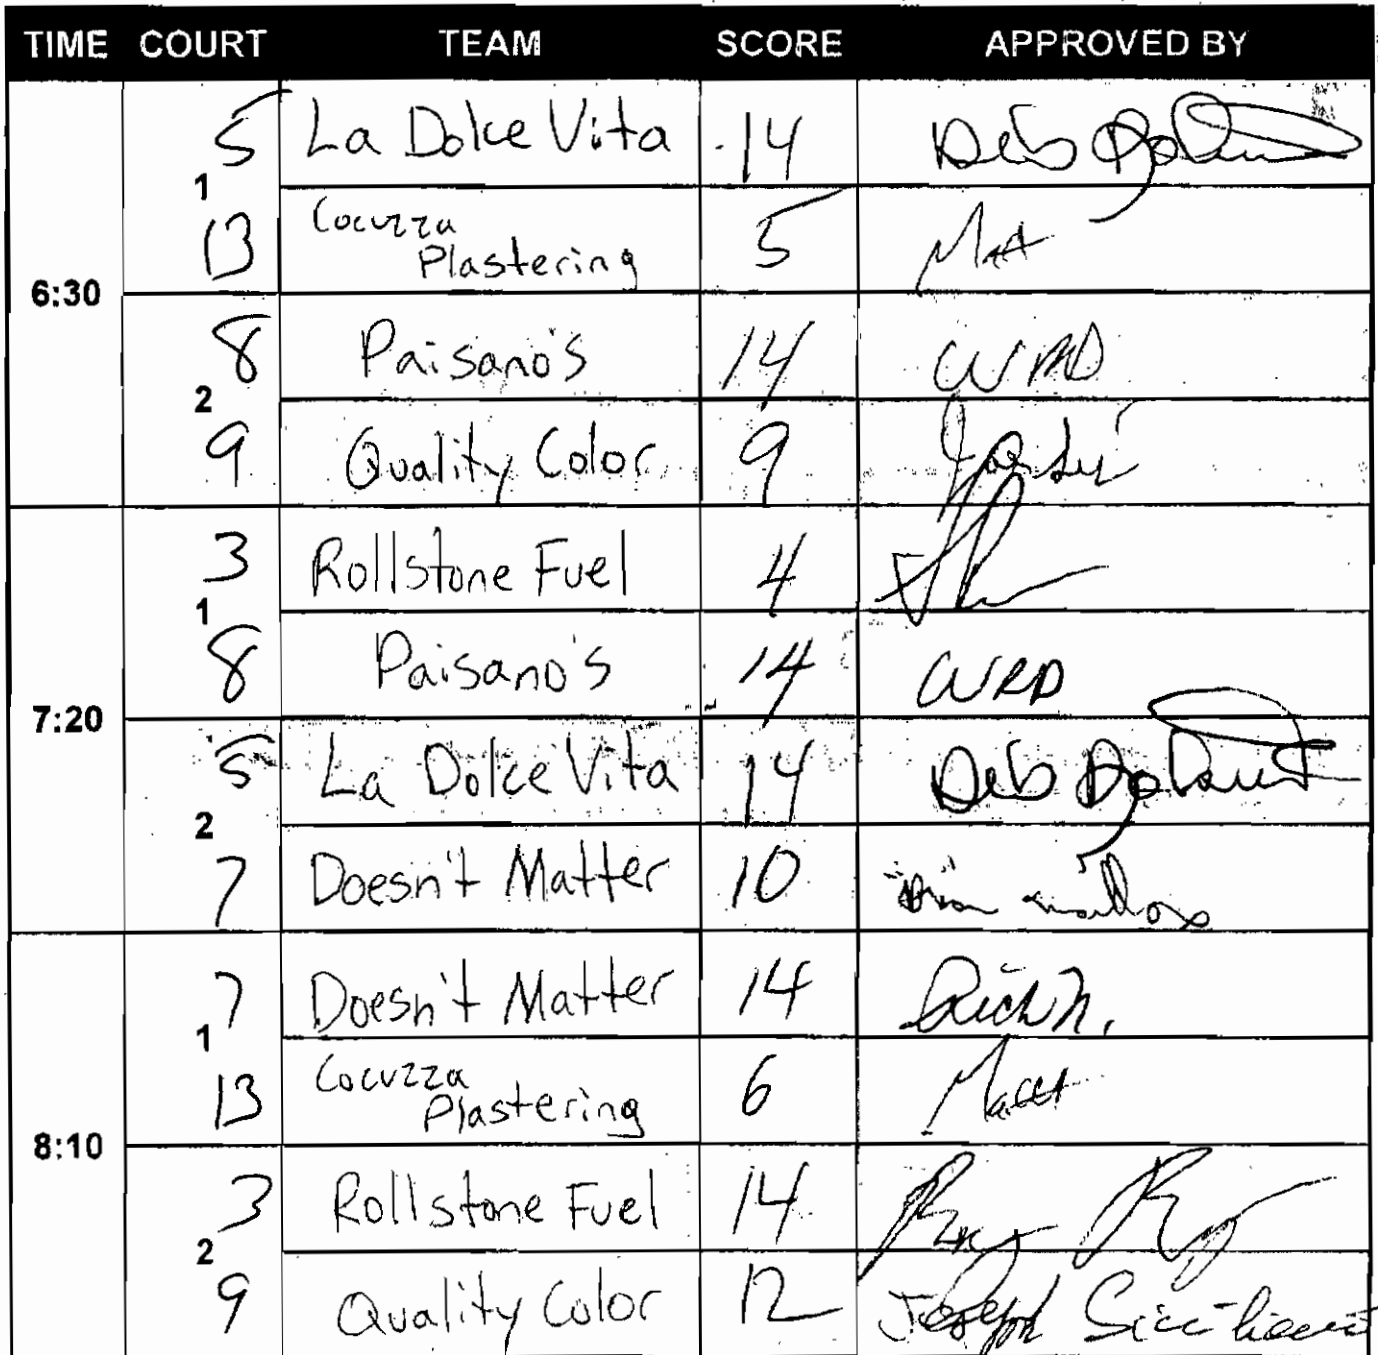 TIME COURT TEAM SCORE APPROVED BY
6:30
1
5 La Dolce Vita 14
13 Cocuzza
Plastering 5 Matt
2
8 Paisano's 14 WRD
9 Quality Color 9
7:20
1
3 Rollstone Fuel 4
8 Paisano's 14 WRD
2
5 La Dolce Vita 14
7 Doesn't Matter 10
8:10
1
7 Doesn't Matter 14 Rich N.
13 Cocuzza
Plastering 6 Matt
2
3 Rollstone Fuel 14
9 Quality Color 12 Joseph